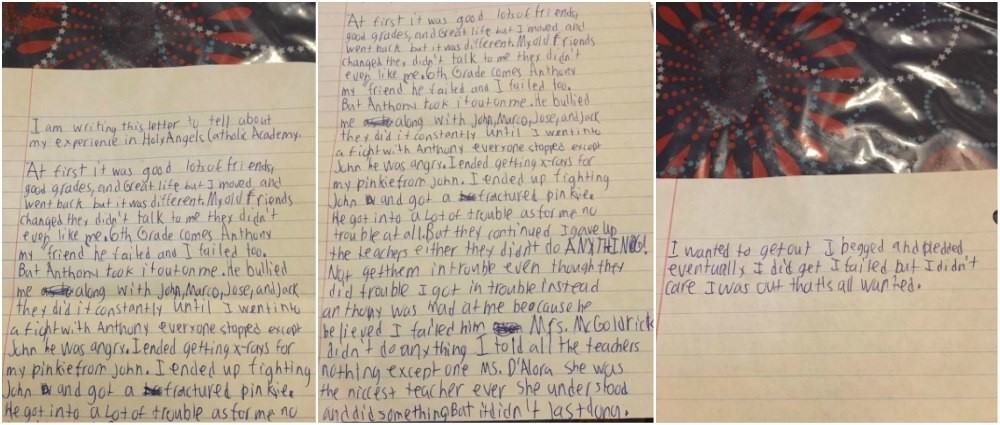 I am writing this letter to tell about
my experience in Holy Angels Catholic Academy.
At first it was good lots of friends,
good grades, and Great life but I moved and
went back but it was different. My old Friends
changed they didn't talk to me they didn't
even like me. 6th Grade comes Anthony
my friend he failed and I failed too.
But Anthony took it out on me. He bullied
me along with John, Marco, Jose, and Jack
they did it constantly until I went into
a fight with Anthony everyone stopped except
John he was angry. I ended getting x-rays for
my pinkie from John. I ended up fighting
John and got a fractured pinkie.
He got into a Lot of trouble as for me no
At first it was good lots of friends,
good grades, and Great life but I moved and
went back but it was different. My old Friends
changed they didn't talk to me they didn't
even like me. 6th Grade comes Anthony
my friend he failed and I failed too.
But Anthony took it out on me. He bullied
me along with John, Marco, Jose, and Jack
they did it constantly until I went into
a fight with Anthony everyone stopped except
John he was angry. I ended getting x-rays for
my pinkie from John. I ended up fighting
John and got a fractured pinkie.
He got into a Lot of trouble as for me no
trouble at all. But they continued I gave up
the teachers either they didn't do ANYTHING!
Not get them in trouble even though they
did trouble I got in trouble instead
anthony was mad at me beocause he
believed I failed him Mrs. McGoldrick
didn't do anything I told all the teachers
nothing except one Ms. D'Alora she was
the niccest teacher ever she understood
and did something But it didn't last long.
I wanted to get out I begged and pleded
eventually I did get I failed but I didn't
care I was out that's all wanted.